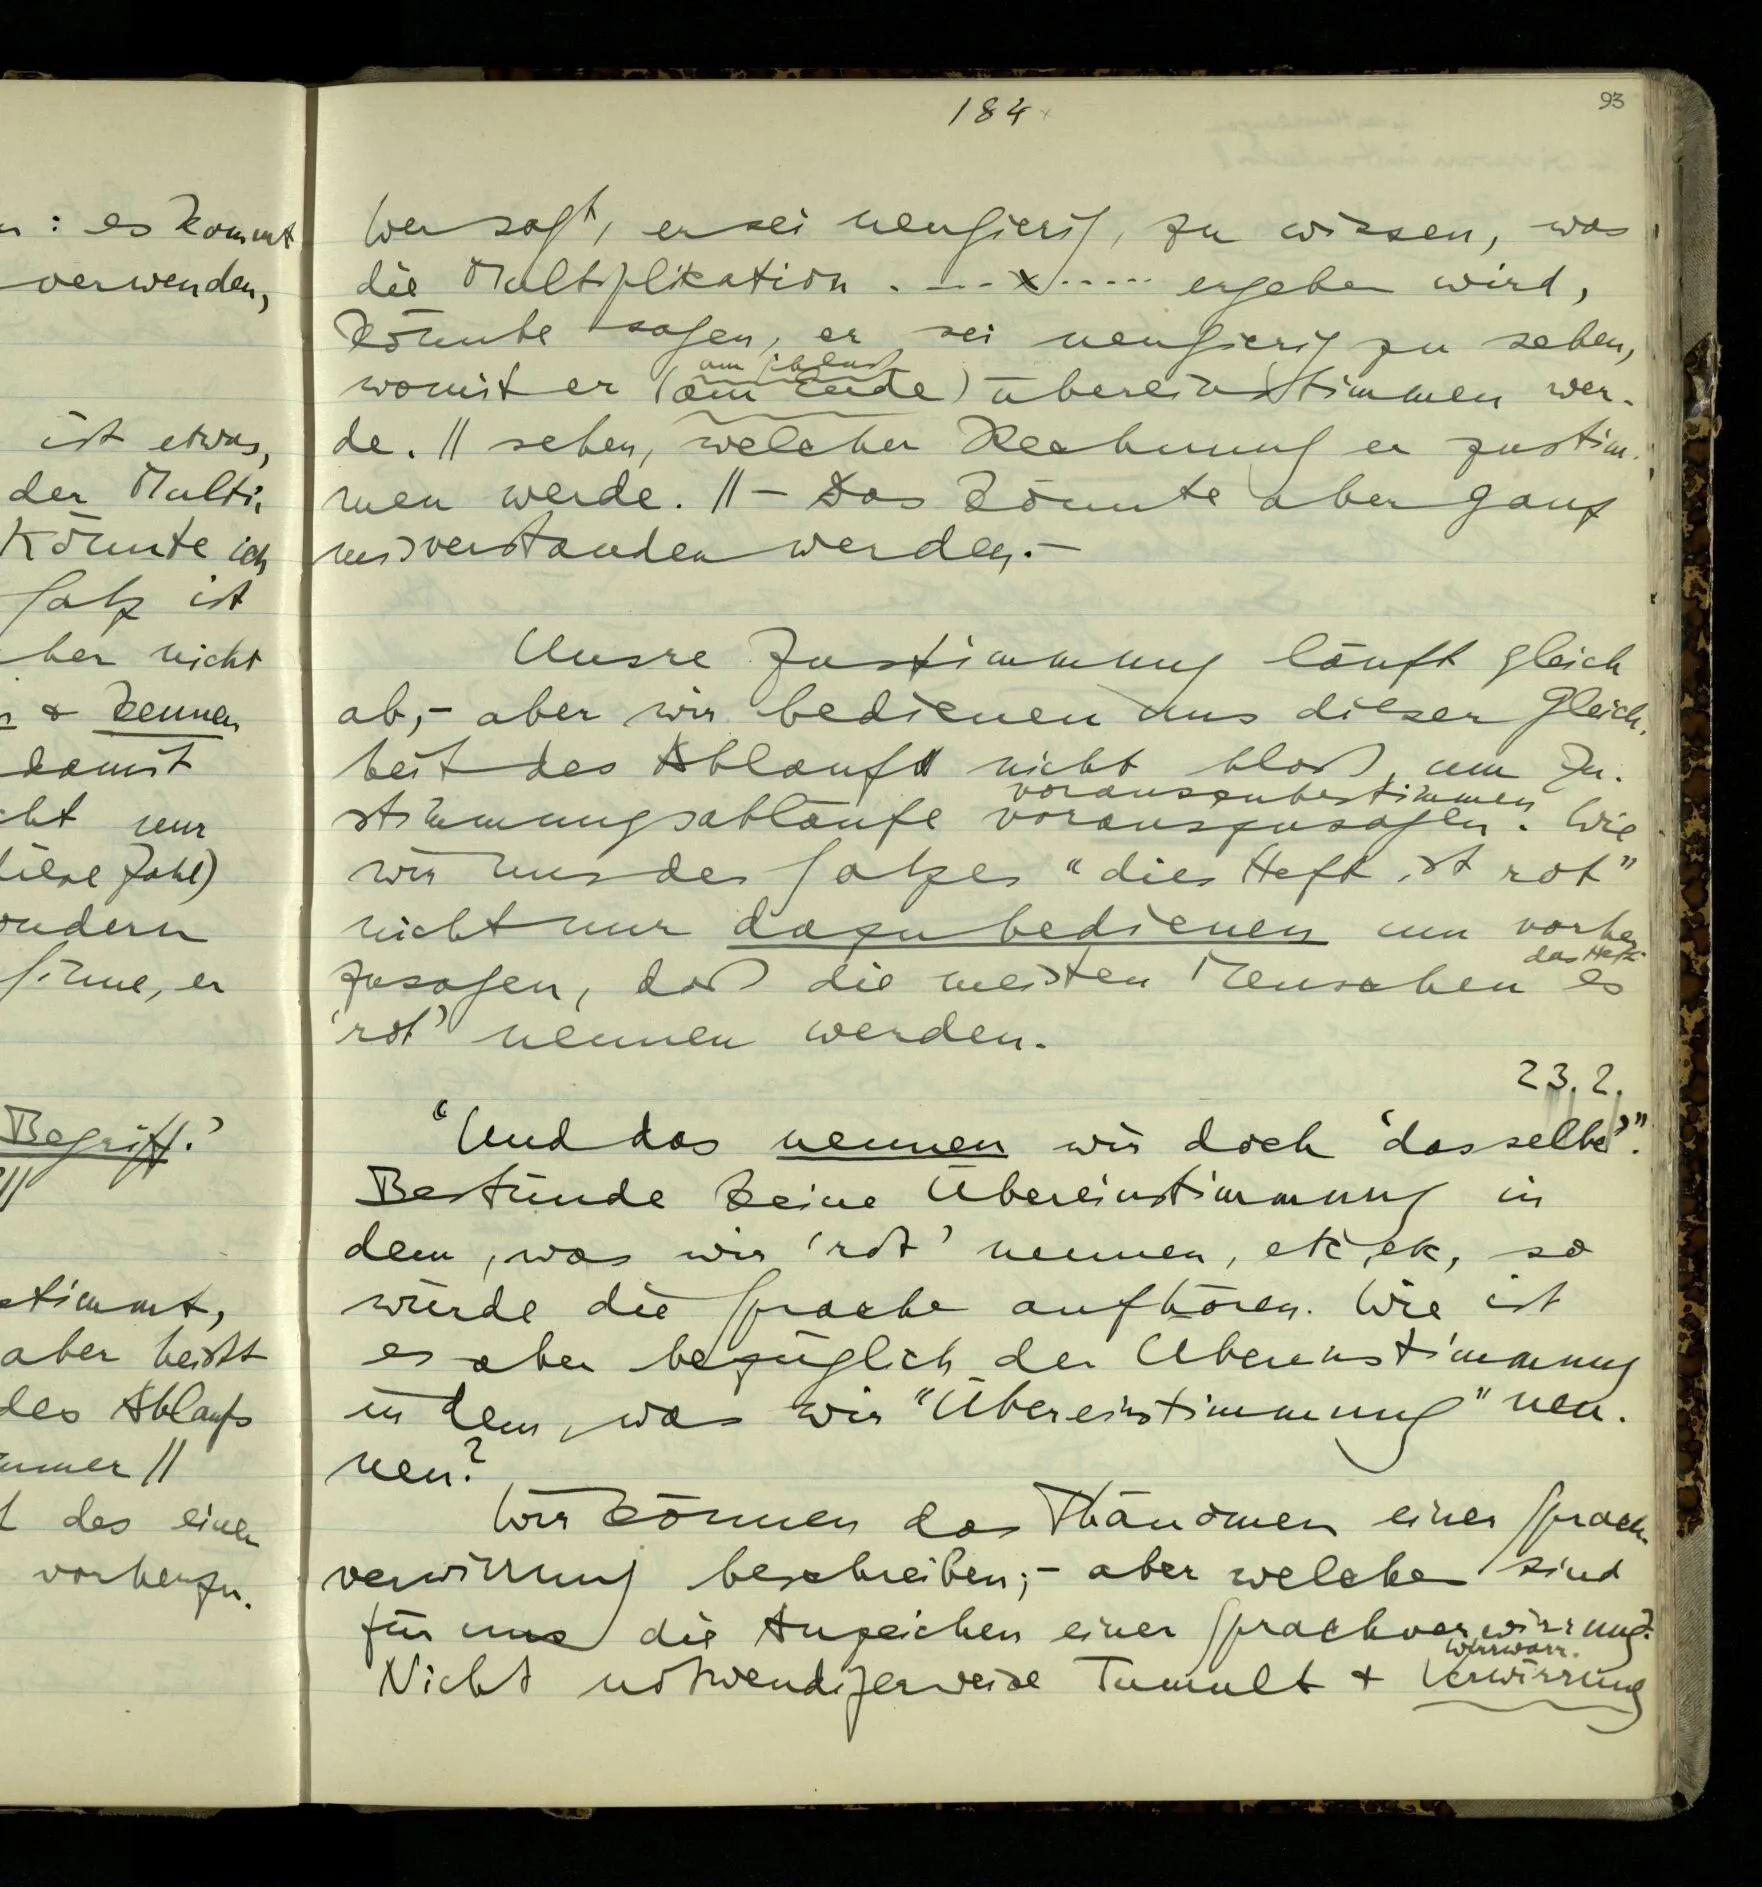 184
93
n: es kommt
verwenden,
ist etwas,
der Multi,
Könnte ich
Satz ist
ber nicht
& kennen
damit
cht nur
diese Zahl)
ondern
Sinne, er
Begriff.'
stimmt,
aber heißt
des Ablaufs
mmer ||
des einen
vorherzu.
Wer sagt, er sei neugierig, zu wissen, was
die Multiplikation . --- x ..... ergeben wird,
könnte sagen, er sei neugierig zu sehen,
am
womit er (am Ende) übereinstimmen wer-
de. || sehen, welcher Rechnung er zustim-
men werde. || – Das könnte aber ganz
misverstanden werden. –
Unsre Zustimmung läuft gleich
ab, – aber wir bedienen uns dieser Gleich-
heit des Ablaufs nicht bloß, um Zu-
vorauszubestimmen
stimmungsabläufe vorauszusagen. Wie
wir uns des Satzes "dies Heft ist rot"
nicht nur dazu bedienen um vorher
das Heft
zusagen, daß die meisten Menschen es
'rot' nennen werden.
23.2.
"Und das nennen wir doch 'dasselbe'."
Bestünde keine Übereinstimmung in
dem, was wir 'rot' nennen, etc, etc, so
würde die Sprache aufhören. Wie ist
es aber bezüglich der Übereinstimmung
in dem, was wir "Übereinstimmung" nen-
nen?
Wir können das Phänomen einer Sprach-
verwirrung beschreiben; – aber welche sind
für uns die Anzeichen einer Sprachverwirrung?
Wirrwarr.
Nicht notwendigerweise Tumult & Verwirrung